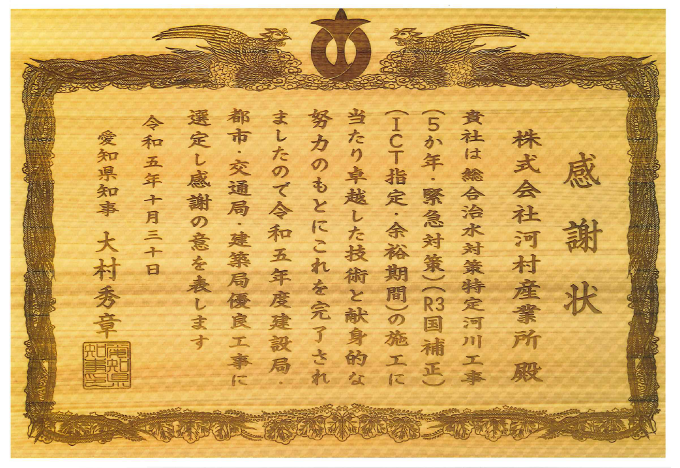 感謝状
株式会社河村産業所 殿
貴社は総合治水対策特定河川工事
(5か年・緊急対策)(R3国補正)
(ICT指定・余裕期間)の施工に
当たり卓越した技術と献身的な
努力のもとにこれを完了され
ましたので令和五年度建設局・
都市・交通局・建築局優良工事に
選定し感謝の意を表します
令和五年十月三十日
愛知県知事 大村秀章
愛知県知事之印